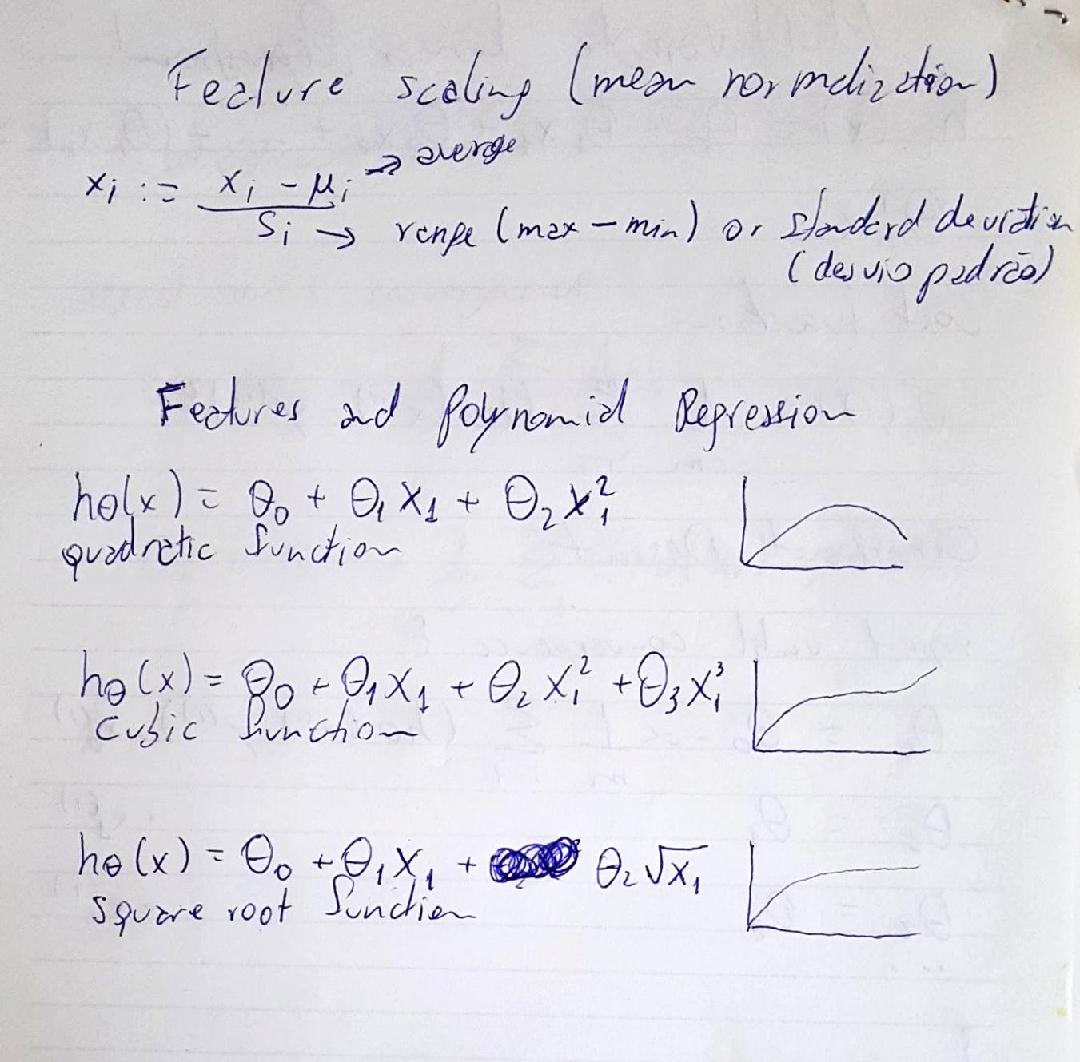 Feature scaling (mean normalization)
xᵢ := (xᵢ - μᵢ) / Sᵢ
→ average
→ range (max - min) or standard deviation
(desvio padrão)
Features and Polynomial Regression
hθ(x) = θ₀ + θ₁x₁ + θ₂x₁²
quadratic function
hθ(x) = θ₀ + θ₁x₁ + θ₂x₁² + θ₃x₁³
cubic function
hθ(x) = θ₀ + θ₁x₁ + θ₂√x₁
square root function